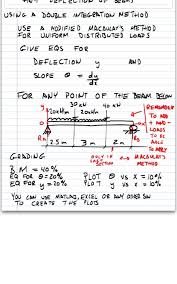 DEFLECTION OF BEAMS
USING A DOUBLE INTEGRATION METHOD
USE A MODIFIED MACAULAY'S METHOD
FOR UNIFORM DISTRIBUTED LOADS
GIVE EQS FOR
DEFLECTION y AND
SLOPE θ = dy/dx
FOR ANY POINT OF THE BEAM BELOW
30 kN 40 kN
20kN/m 20kN/m
REMEMBER
TO ADD
AND -
LOADS
TO BE
ABLE
TO APPLY
MACAULAY'S
METHOD
2.5m 3m 2m
ONLY IN
SECTION
GRADING
B.M = 40%
EQ FOR θ = 20% PLOT θ VS x = 10%
EQ FOR y = 20% PLOT y VS x = 10%
YOU CAN USE MATLAB, EXCEL OR ANY OTHER SW
TO CREATE THE PLOTS